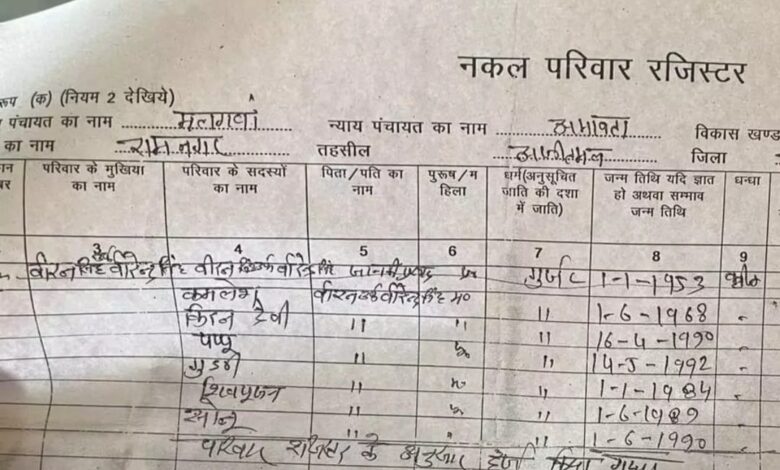 नकल परिवार रजिस्टर
रूप (क) (नियम 2 देखिये)
पंचायत का नाम मलगवां न्याय पंचायत का नाम अमावता विकास खण्ड
का नाम रामनगर तहसील अजीतमल जिला
परिवार के मुखिया का नाम परिवार के सदस्यों का नाम पिता/पति का नाम पुरूष/महिला धर्म(अनुसूचित जाति की दशा में जाति) जन्म तिथि यदि ज्ञात हो अथवा सम्भाव जन्म तिथि धन्धा
3 4 5 6 7 8 9
वीरन सिंह वीरेन्द्र सिंह वीरन सिंह उर्फ वीरेन्द्र सिंह जानकी प्रसाद गुर्जर 1-1-1953
कमलेश वीरन उर्फ वीरेन्द्र सिंह म० " 1-6-1968
किरन देवी " " " 16-4-1990
पप्पू " " 14-5-1992
गुड्डी " " 1-1-1984
शिवपूजन " " 1-6-1989
श्यामू " " 1-6-1990
परिवार रजिस्टर के अनुसार दर्ज किया गया